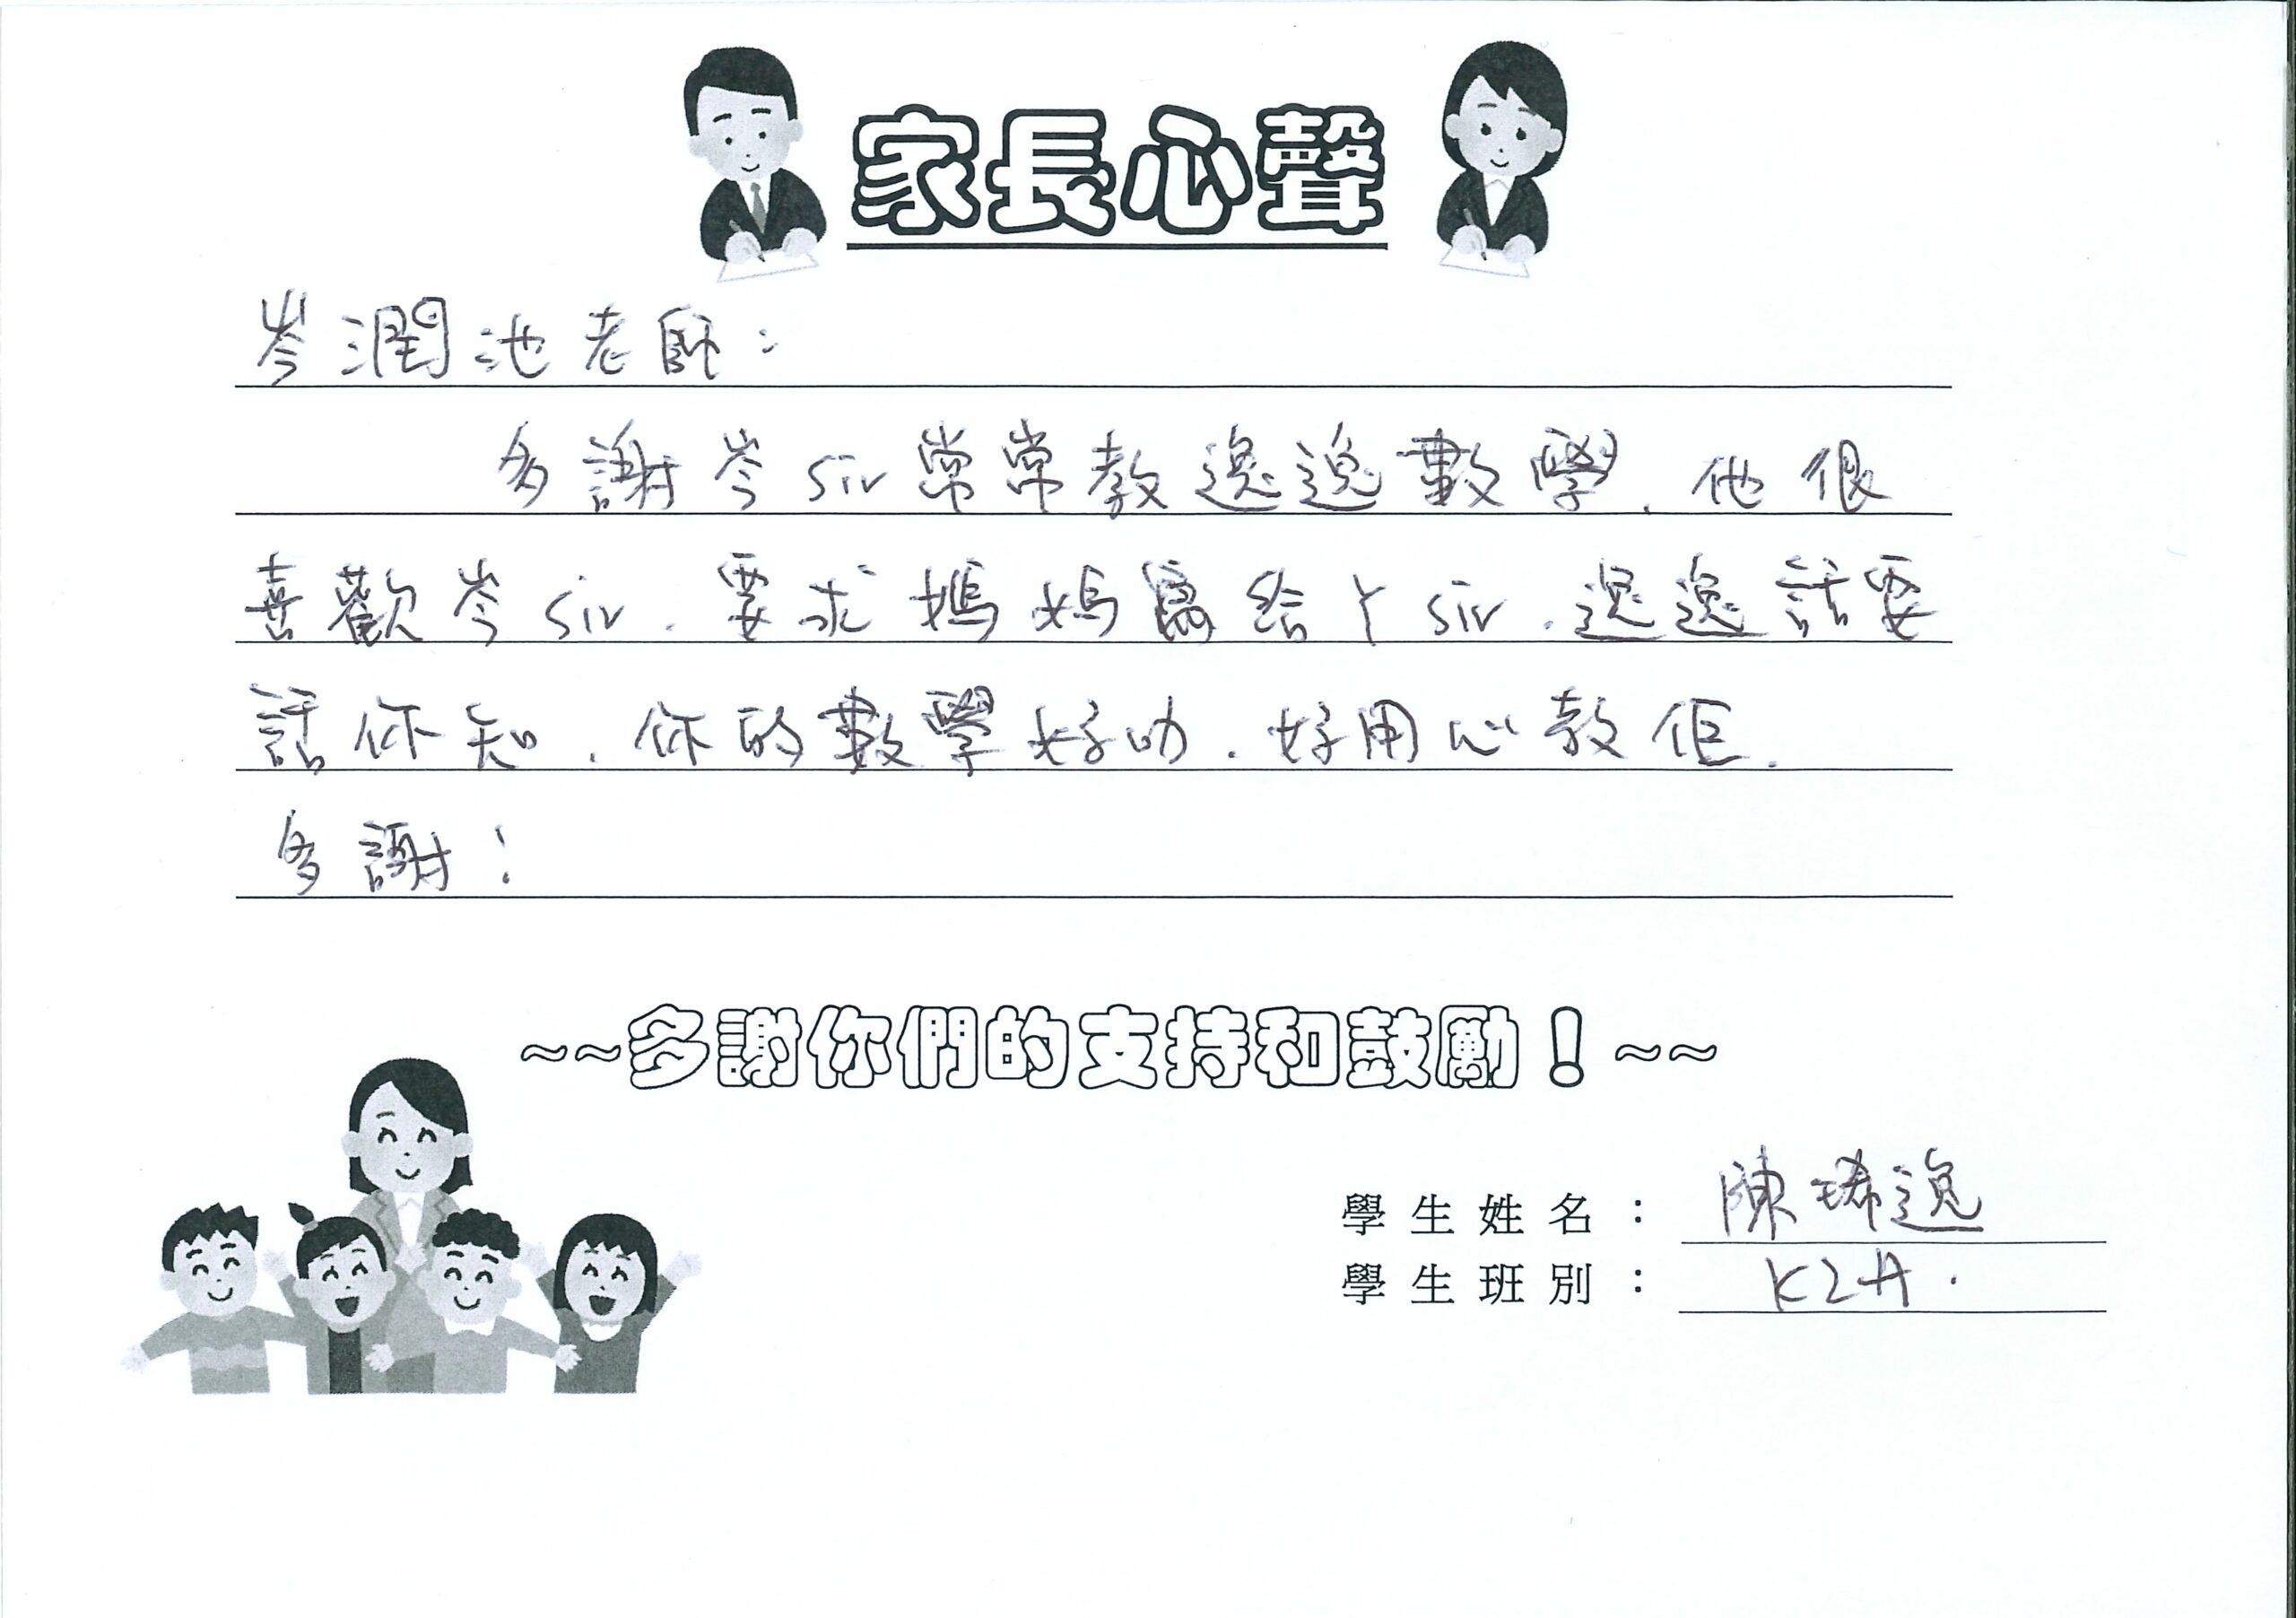 家長心聲
岑潤池老師：
多謝岑sir常常教逸逸數學，他很
喜歡岑sir，要求媽媽寫給丫sir，逸逸話要
話你知，你的數學好叻，好用心教佢，
多謝！
~~多謝你們的支持和鼓勵！~~
學生姓名： 陳琋逸
學生班別： K2A.